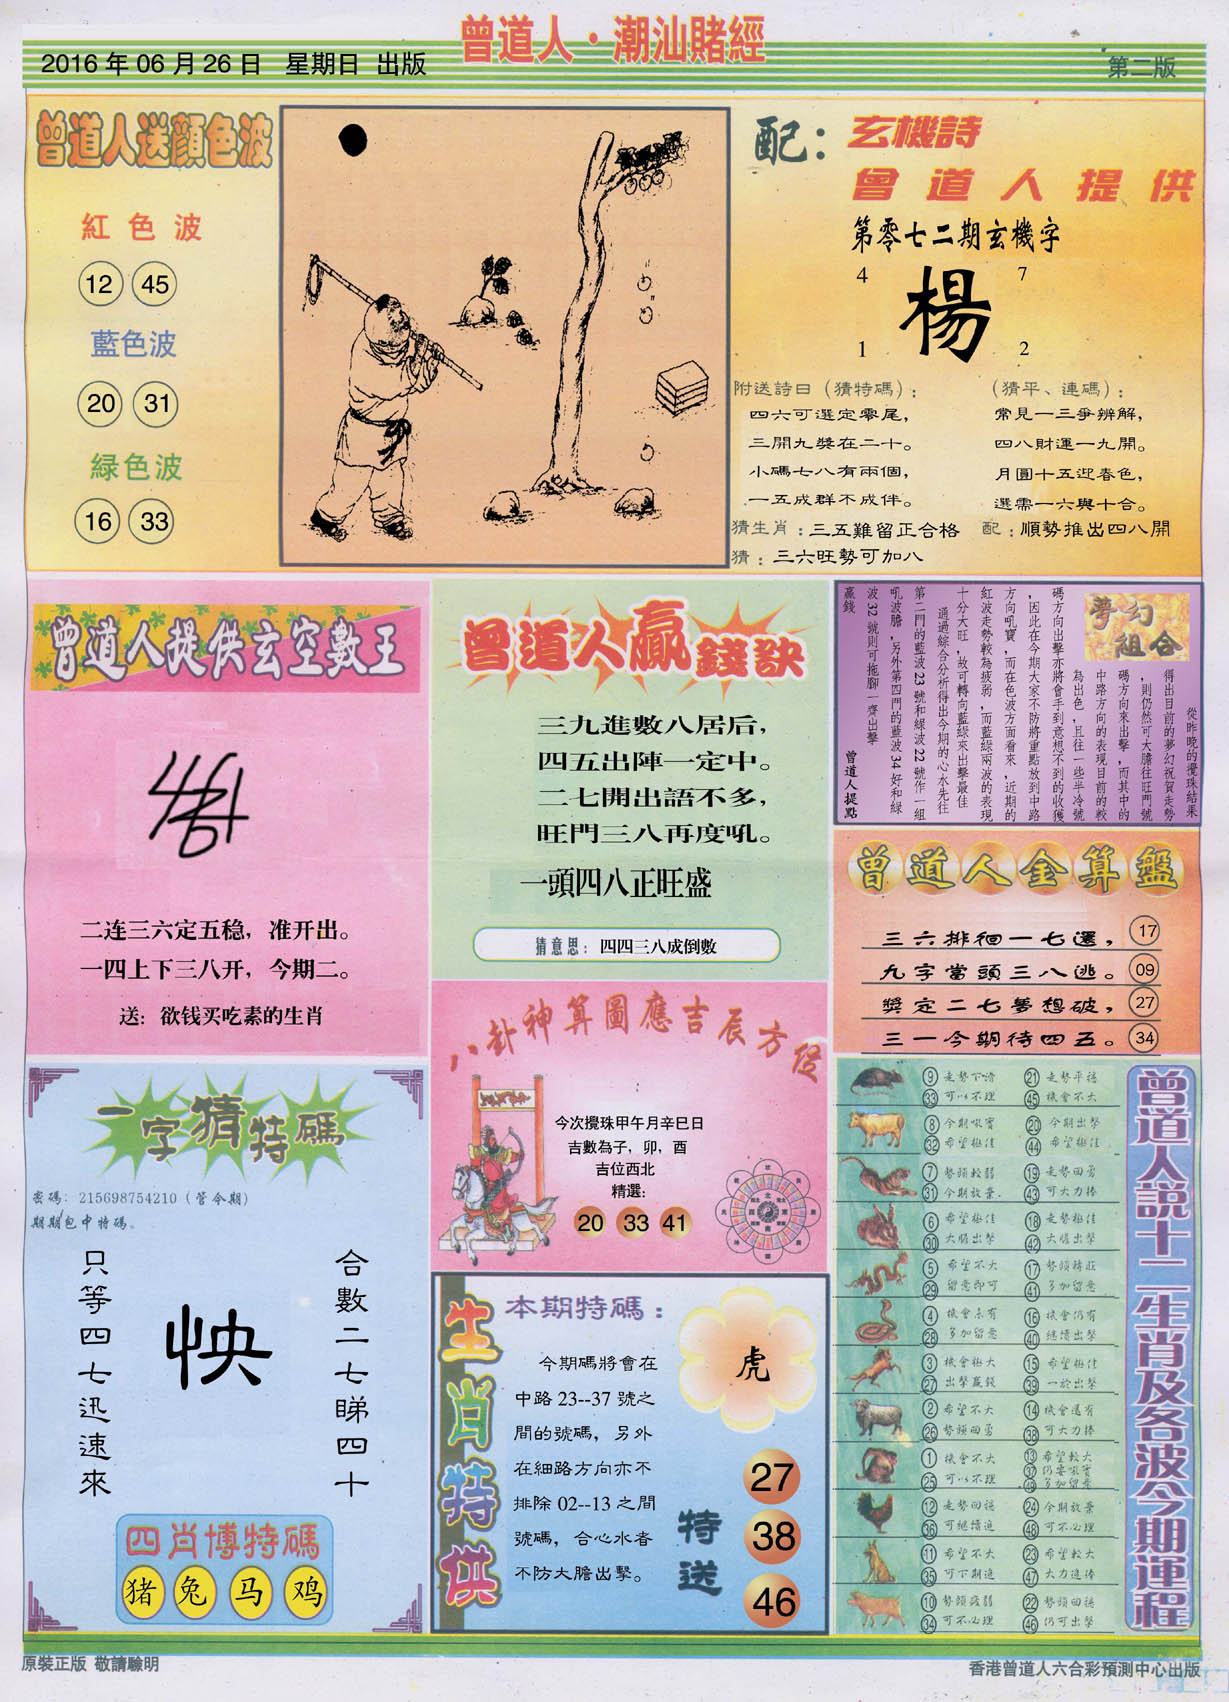 曾道人·潮汕賭經
2016年06月26日 星期日 出版
第二版
曾道人送顔色波
紅色波
12 45
藍色波
20 31
緑色波
16 33
配：玄機詩
曾道人提供
第零七二期玄機字
4 7
楊
1 2
附送詩曰（猜特碼）：
四六可選定零尾，
三開九獎在二十。
小碼七八有兩個，
一五成群不成伴。
（猜平、連碼）：
常見一三爭辨解，
四八財運一九開。
月圓十五迎春色，
選需一六與十合。
猜生肖：三五難留正合格
配：順勢推出四八開
猜：三六旺勢可加八
曾道人提供玄空數王
二连三六定五稳，准开出。
一四上下三八开，今期二。
送：欲钱买吃素的生肖
曾道人贏錢訣
三九進數八居后，
四五出陣一定中。
二七開出語不多，
旺門三八再度吼。
一頭四八正旺盛
猜意思：四四三八成倒數
夢幻組合
從昨晚的攪珠結果
得出目前的夢幻祝賀走勢
，則仍然可大膽往旺門號
碼方向來出擊，而其中的
中路方向的表現目前的較
為出色，且往一些半冷號
碼方向出擊亦將會手到意想不到的收獲
，因此在今期大家不防將重點放到中路
方向吼寶，而在色波方面看來，近期的
紅波走勢較為疲弱，而藍綠兩波的表現
十分大旺，故可轉向藍綠來出擊最佳
通過綜合分析得出今期的心水先往
第二門的藍波23號和綠波22號作一組
吼波膽，另外第四門的藍波34好和綠
波32號則可拖腳一齊出擊
贏錢
曾道人提點
曾道人金算盤
三六排徊一七選， 17
九字當頭三八逃。 09
獎定二七夢想破， 27
三一今期待四五。 34
八卦神算圖應吉辰方位
今次攪珠甲午月辛巳日
吉數為子，卯，酉
吉位西北
精選：
20 33 41
一字猜特碼
密碼：215698754210（管令期）
期期包中特碼。
只等四七迅速來
怏
合數二七睇四十
四肖博特碼
猪 兔 马 鸡
生肖特供
本期特碼：
今期碼將會在
中路23--37號之
間的號碼，另外
在細路方向亦不
排除02--13之間
號碼，合心水者
不防大膽出擊。
虎
特送
27
38
46
曾道人說十二生肖及各波今期運程
9 走勢下滑 21 走勢平穩
33 可以不理 45 機會不大
8 今期吼寶 20 今期出擊
32 希望極佳 44 希望極佳
7 勢頭較弱 19 走勢回勇
31 今期放棄. 43 可大力捧
6 希望極佳 18 走勢極佳
30 大膽出擊 42 大膽出擊
5 希望不大 17 勢頭轉旺
29 留意即可 41 多加留意
4 機會未有 16 機會仍有
28 多加留意 40 繼續出擊
3 機會極大 15 希望極佳
27 出擊贏錢 39 一於出擊
2 希望不大 14 機會還有
26 勢頭回勇 38 可大力捧
1 機會不大 13 希望較大
25 可以不理 37 仍要吼寶
49 多加留意
12 走勢回穩 24 今期放棄
36 可繼續追 48 可不必理
11 希望不大 23 希望較大
35 可下期追 47 大力追捧
10 勢頭疲弱 22 勢頭回穩
34 可不必理 46 仍可出擊
原裝正版 敬請驗明
香港曾道人六合彩預測中心出版